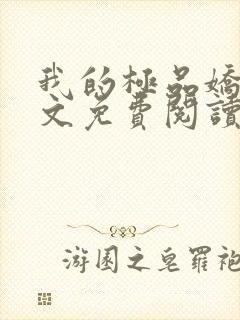 我的極品嬌
文免費閱讀
游園之皂羅袍